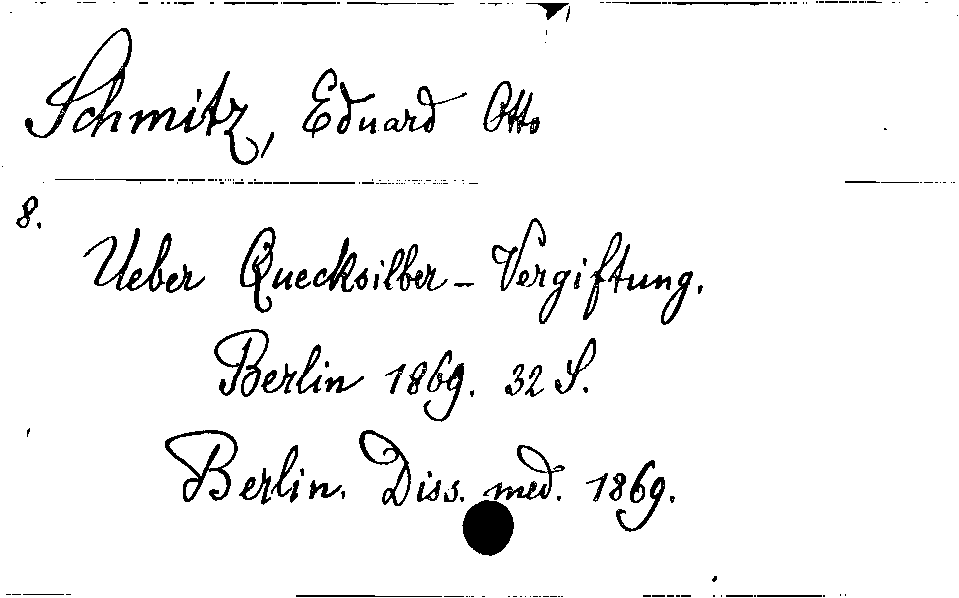 Schmitz, Eduard Otto
8.
Ueber Quecksilber-Vergiftung.
Berlin 1869. 32 S.
Berlin. Diss. med. 1869.